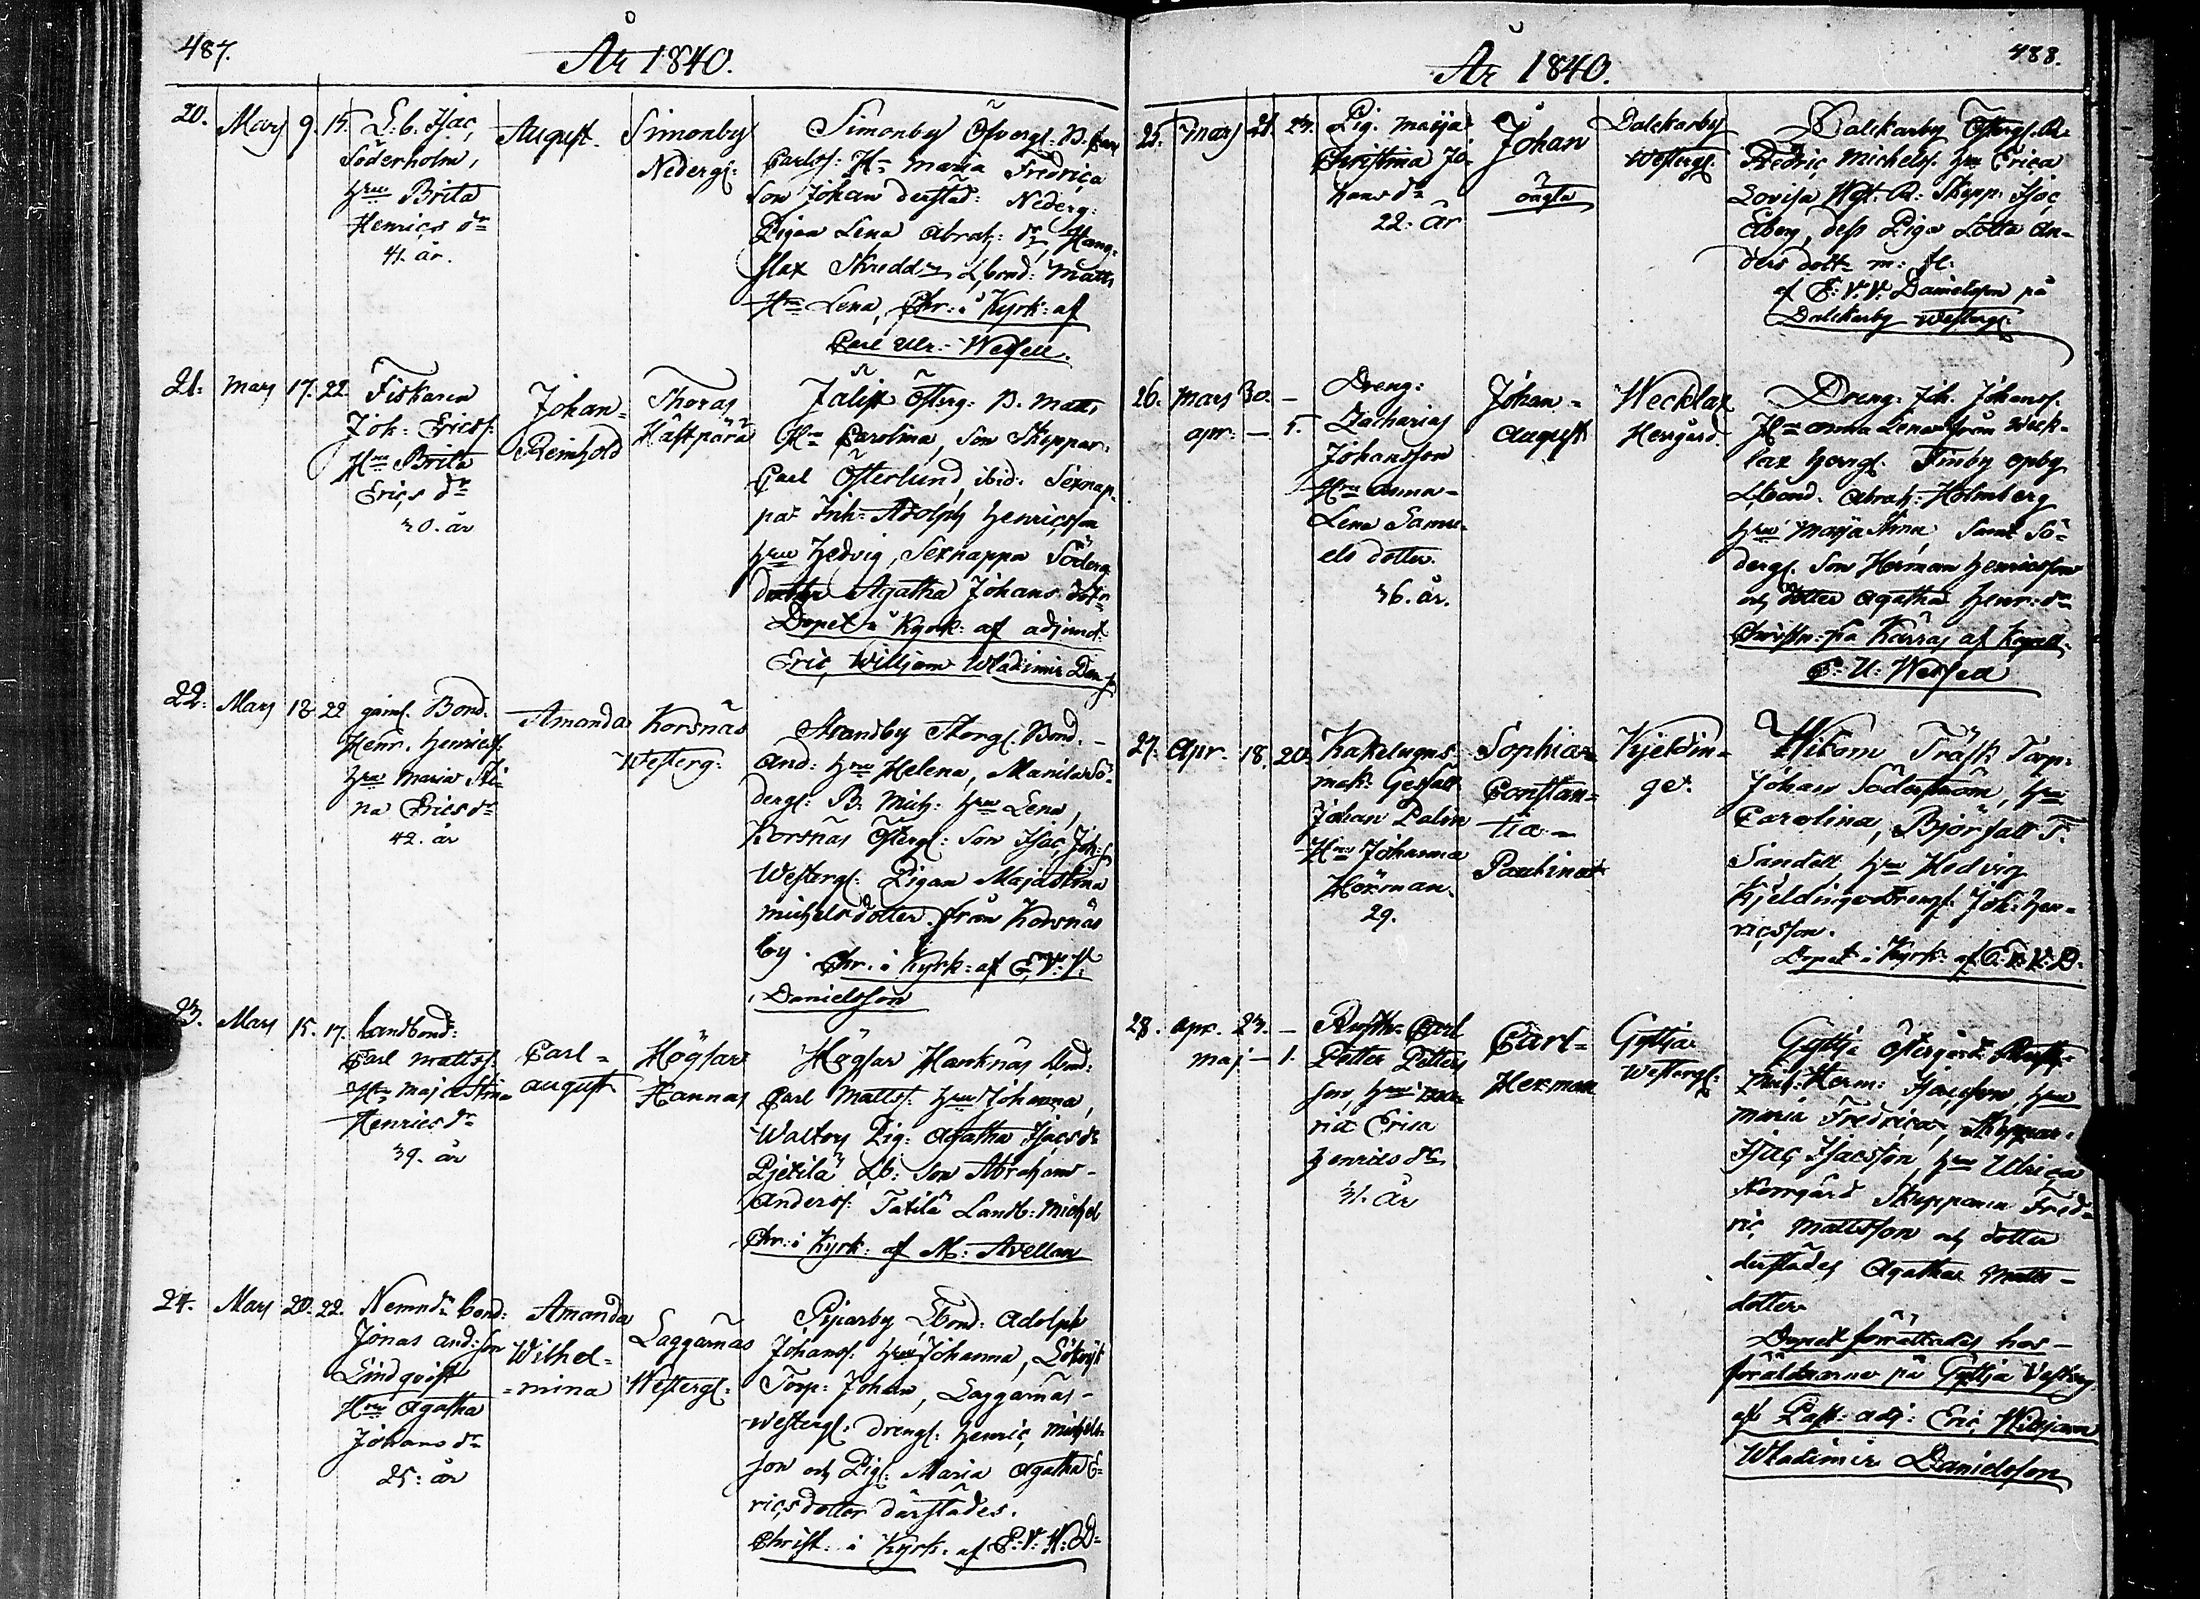 487.
År 1840.
20. Mars 9. 15. L: b. Isac
Söderholm,
hru Brita
Henrics dr
41. år.
August.
Simonby
Nederg:
Simonby Öfverg. B. Carl
Carlss: H. Maria Fredrica
Son Johan derstäd: Nederg:
Pigan Lena Abrah: dr, Hang-
slax Lbond: Matts
Hru Lena, Chr: i Kyrk: af
Carl Ulr:
21. Mars 17. 22. Fiskaren
Joh: Ericss:
Hru Brita
Erics dr
30. år
Johan-
Reinhold
Thoras
Jälist Österg: B. Matts
H. Carolina, Son Skeppar:
Carl Österlund, ibid: Sexnap-
pa Inh: Adolph Henricsson
hru Hedvig, Sexnappa Söderg
Agatha Johans dotr
Döpet i Kyrk: af adjunct:
Eric Williams Wladimir Dan
22. Mars 18. 22 gaml. Bond.
Henr. Henricss.
hru Maria Sti-
na Erics dr
42. år
Amanda
Korsnäs
Westerg:
Strandby Storg. Bond. -
And: hru Helena, Manila Sö-
derg: B. Mich: hru Lena,
Korsnäs Österg: Son Isac Joh:
Westerg: Pigan Majastina
Michels dotter från Korsnäs
by. Chr. i Kyrk: af E. V. V.
Danielsson
23. Mars 15. 17. Landbond:
Carl Mattss:
Hru Majastina
Henrics dr
39. år
Carl-
August
Högsar
Hannas
Högsar Lbond:
Carl Mattss. hru Johanna,
Pig: Agatha Isacs dr
Pjetilä Lb: Son Abraham-
Anderss: Tätilä Landb: Michel
Chr: i Kyrk: af M: Avellan
24. Mars 20. 22. Nemnd: bond:
Jonas And:son
Lindqvist
Hru Agatha
Johans dr
25: år
Amanda
Wilhel-
=mina
Laggarnäs
Westergl:
Piparby Lbond: Adolph
Johanss: hru Johanna,
Torp: Johan, Laggarnäs-
Westergl. drengl: Henric Michels-
son och Pigl: Maria Agatha E-
rics dotter därstädes.
Christ: i Kyrk. af E: V: W: D-
488.
År 1840.
25. Mars 21. 23. Pig. Maija
Christina Jo-
hans dr
22. år
Johan
oägta
Dalckarby
Westergl.
Dalckarby Östergl. R.
Fredric Michels: hru Erica
Lovisa Wgl. R: Skepp: Isac
Eberg, dess Piga Lotta An-
ders dotr m: fl.
af E: V: V: Danielsson på
Dalckarby Westergl.
26. Mars 30. -
apr. - 5.
Dreng:
Zacharias
Johansson
Hru Anna-
Lena Samu-
els dotter.
36. år.
Johan-
August
Wecklax
Herrgård
Dreng. Joh. Johanss.
H. Anna Lena från Weck-
lax herrg. Finby opby
Lbond. Abrah: Holmberg
hru Maija Stina, samt Sö-
dergl. Son Herman Henricsson
och dotter Agatha Henr: dr
Christn: på Kärras af
C: U:
27. Apr. 18. 20. Kakelugns
mak: Gesäll
Johan Palin
Hru Johanna
Hörman.
29.
Sophia-
Constan-
tia-
Paulina
Kjeldin-
ge.
Wikom Träsk Torp:
Johan Söderström, hru
Carolina, Björsall T.
Sandell, hru Hedvig
Kjeldinge Drengl: Joh: Hen-
ricsson.
Döpet i Kyrk: af E: V: V: D.
28. apr. 23. -
maj - 1.
Rusth: Carl
Petter Petters
son, hru Ma-
ria Erica
Henrics dr
31. år
Carl-
Herman
Gyttja
Westergl:
Gyttja Östergård
Herm: Isacsson, hru
Maria Fredrica, Skeppar:
Isac Isacsson, hru Ulrica
Norrgård Skepparen Fred-
ric Mattsson och dotter
derstädes Agatha Matts-
dotter
Döpet förättades hos-
föräldrarna på Gyttja Vesterg
af Past: adj: Eric William
Wladimir Danielsson